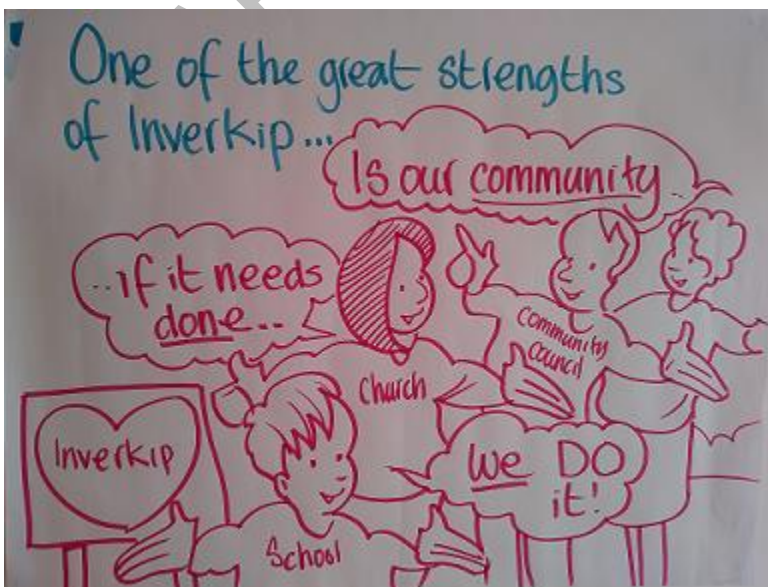 One of the great strengths
of Inverkip...
Is our community..
..if it needs
done...
Community
Council
Church
Inverkip
We DO
it!
School